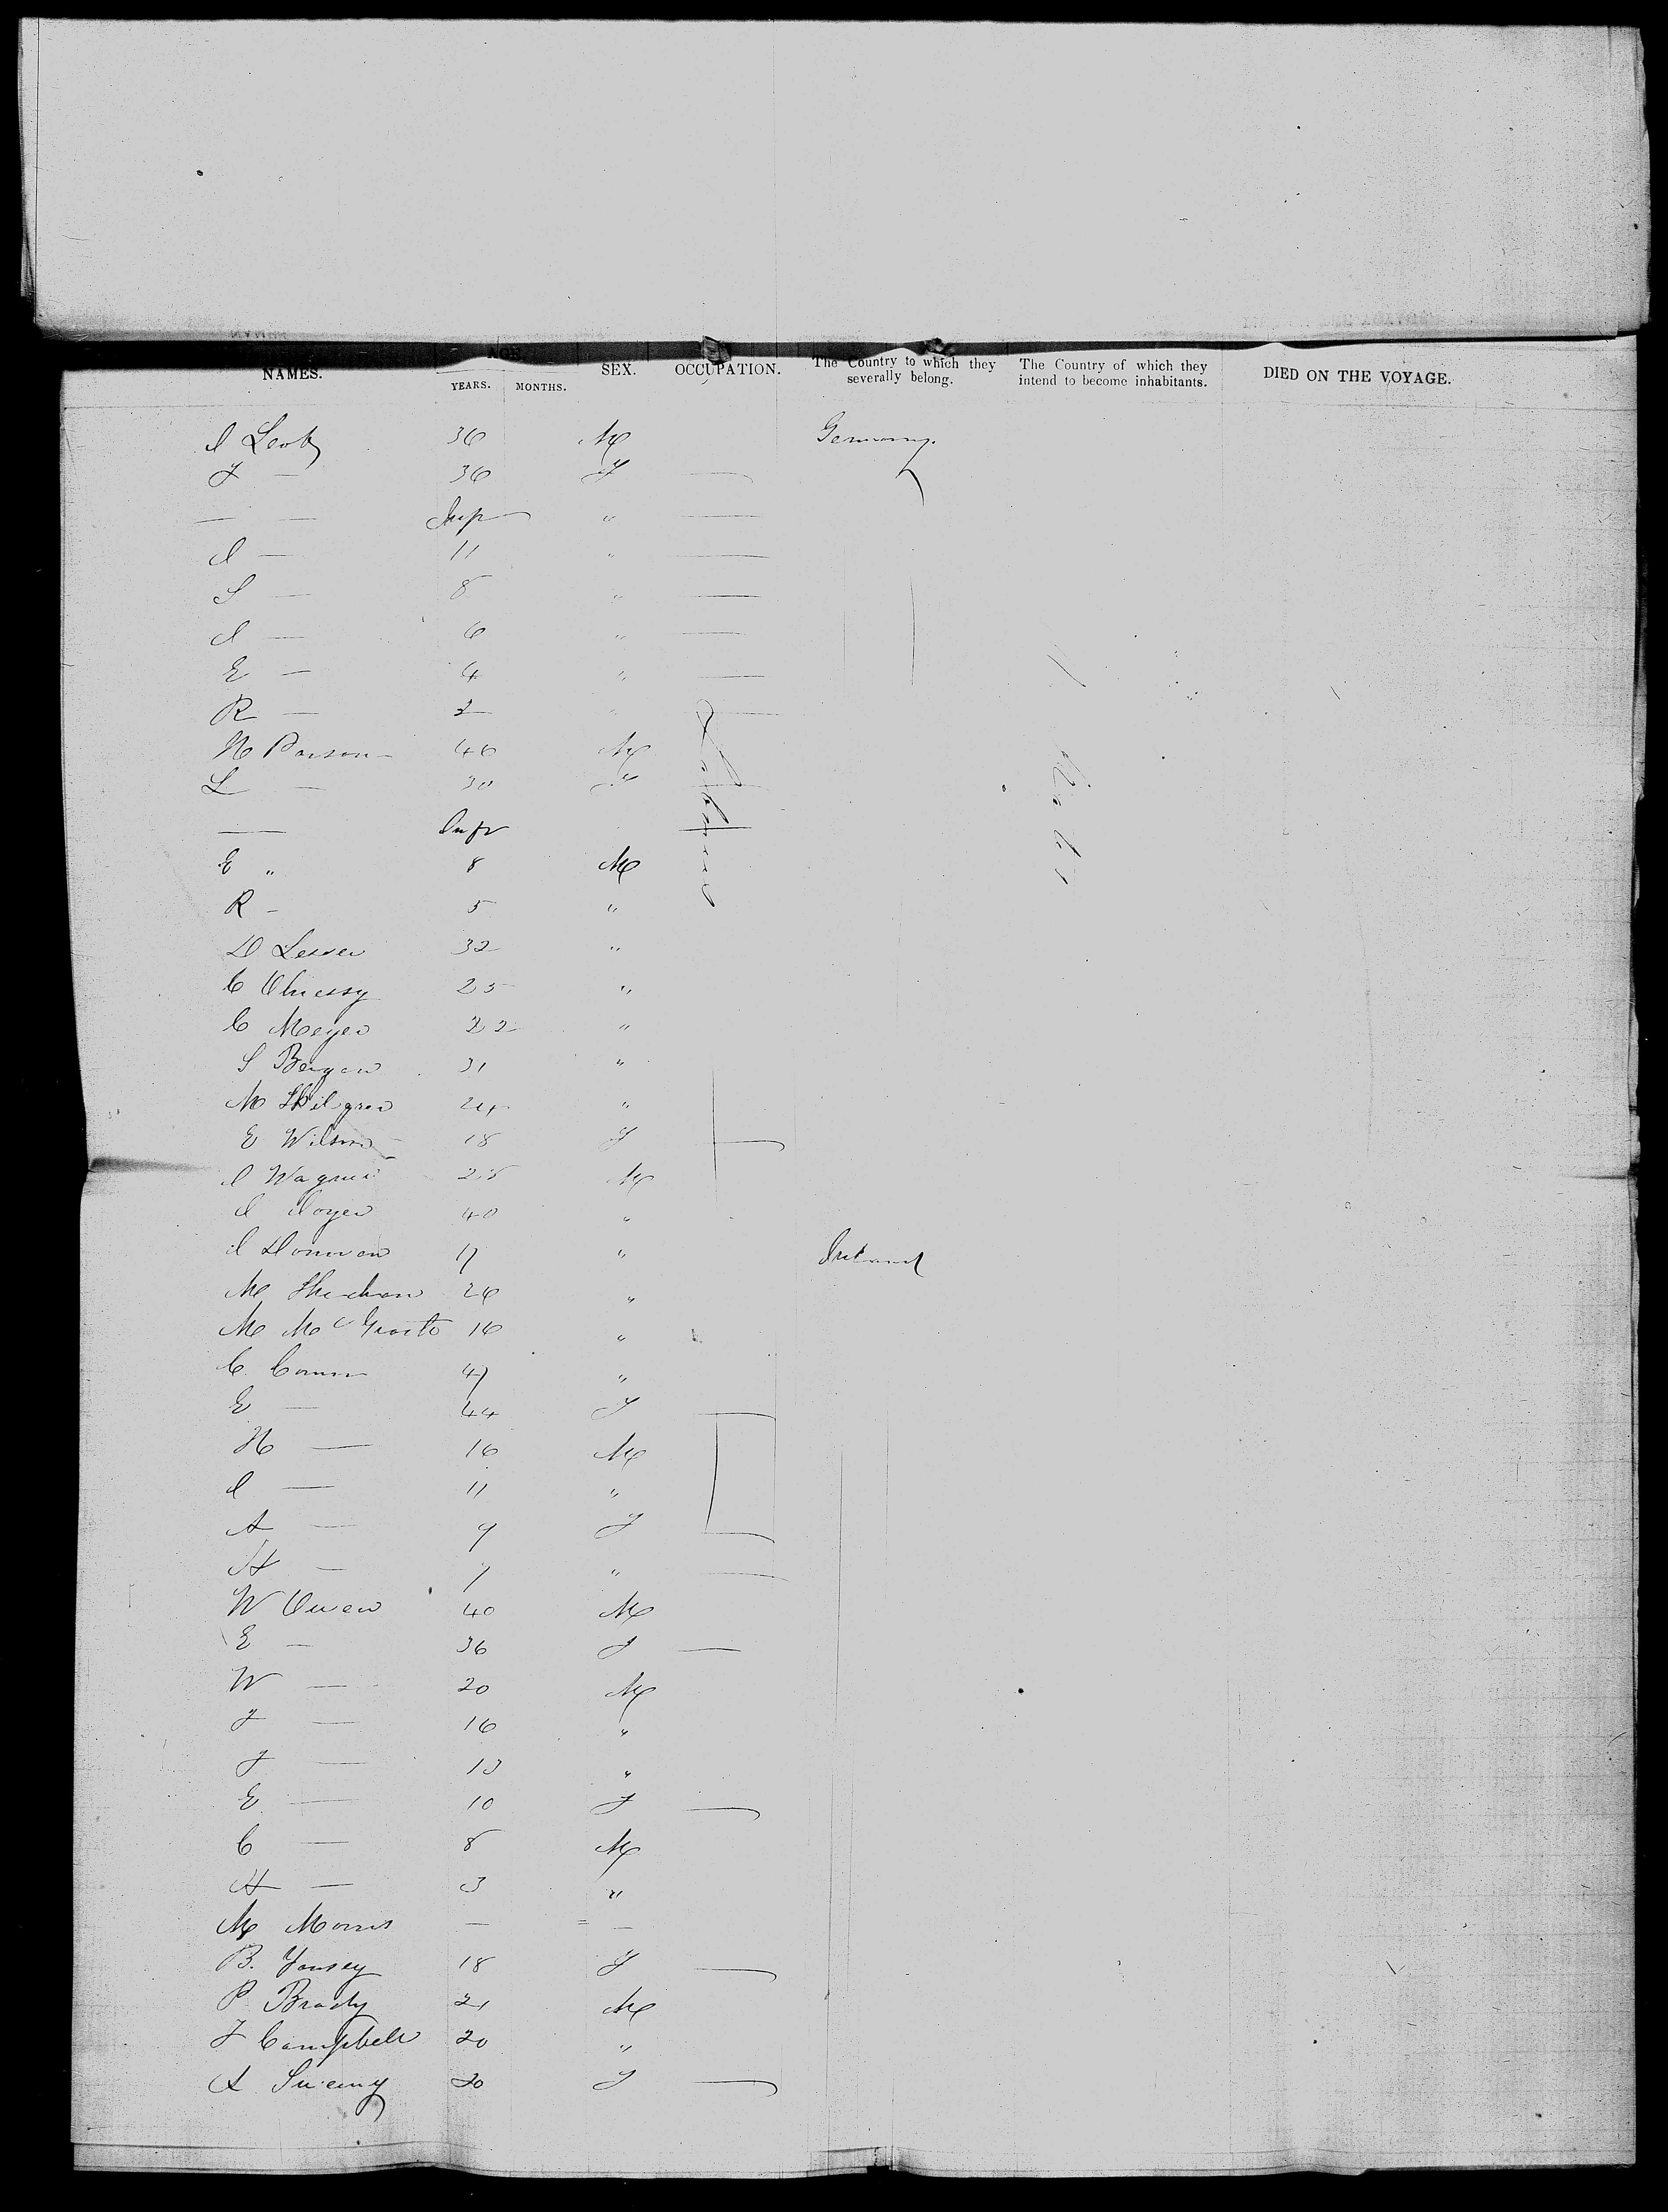 NAMES. AGE. YEARS. MONTHS. SEX. OCCUPATION. The Country to which they severally belong. The Country of which they intend to become inhabitants. DIED ON THE VOYAGE.
36 M Germany.
J — 36 F —
— — Inf " —
I — 11 " —
S — 8 " —
I — 6 " —
E — 4 " —
R — 2 " —
Parson — 46 M
L — 30 F —
— Inf —
E " 8 M
R - 5 "
D 32 "
C 25 "
C Meyer 22 "
S Bergen 31 "
M 24 "
E Wilson 18 F —
I Wagner 28 M
I 40 "
I Donovan 17 " Ireland
M Sheehan 26 "
M McGrath 16 "
C. 47 "
E — 44 F —
H — 16 M
I — 11 "
A — 9 F —
H — 7 " —
W Owen 40 M
E — 36 F —
W — 20 M
J — 16 "
J — 13 "
E — 10 F —
C — 8 M
H — 3 "
M Morris — = —
B. Yousey 18 F —
P Brady 21 M
J Campbell 20 "
A Sweeny 20 F —
Laborers